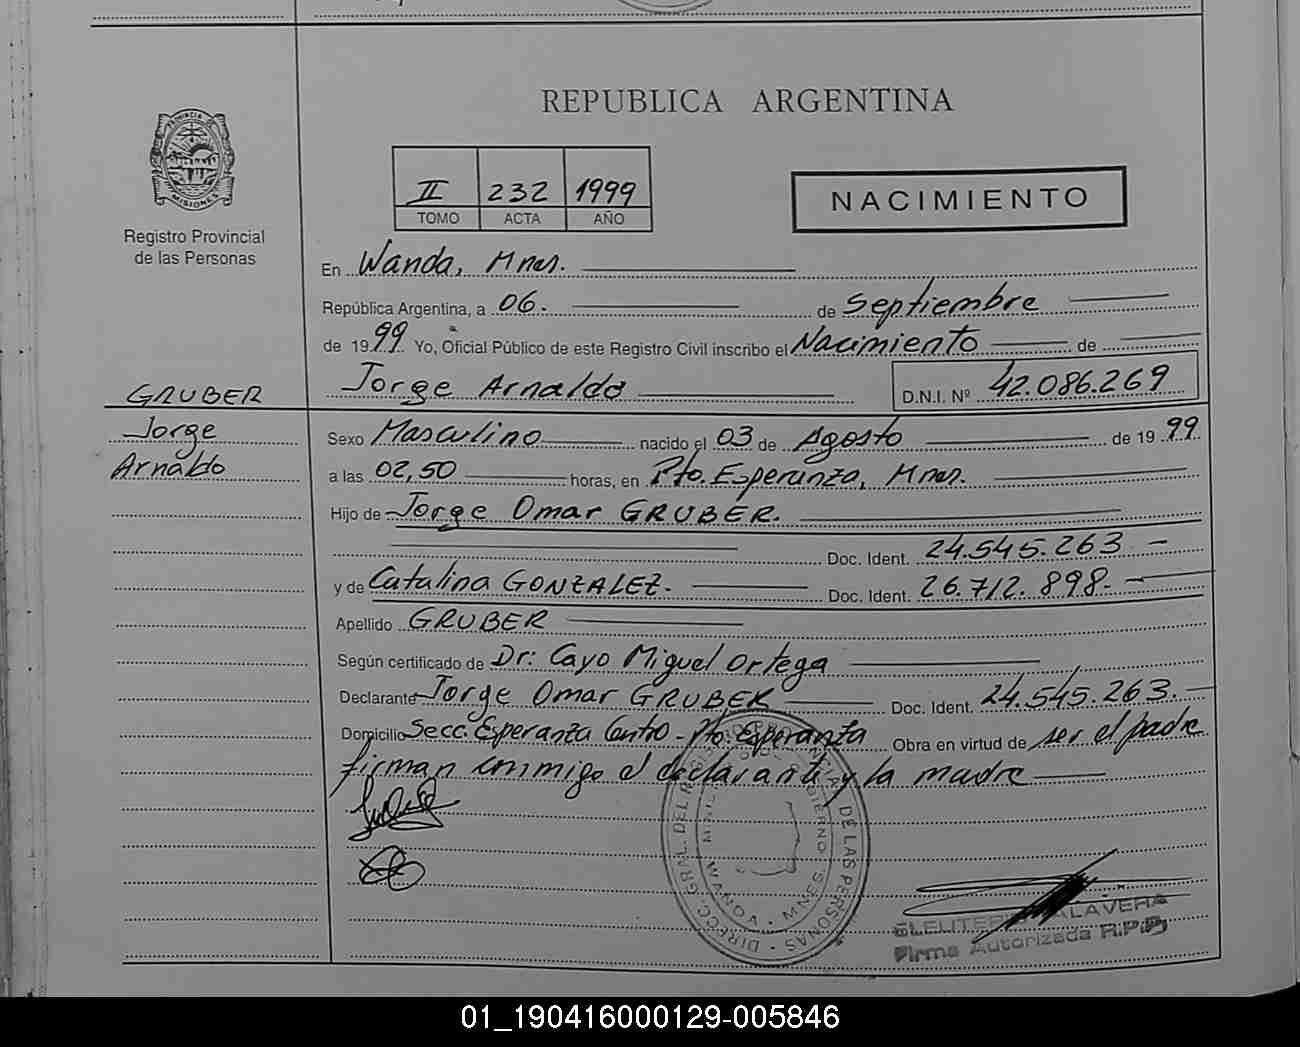 REPUBLICA ARGENTINA
PROVINCIA DE
MISIONES
Registro Provincial
de las Personas
II 232 1999
TOMO ACTA AÑO
NACIMIENTO
En Wanda, Mnes.
República Argentina, a 06. de Septiembre
de 1999 Yo, Oficial Público de este Registro Civil inscribo el Nacimiento de
GRUBER
Jorge
Arnaldo
Jorge Arnaldo D.N.I. Nº 42.086.269
Sexo Masculino nacido el 03 de Agosto de 1999
a las 02,50 horas, en Pto. Esperanza, Mnes.
Hijo de Jorge Omar GRUBER.
Doc. Ident. 24.545.263
y de Catalina GONZALEZ. Doc. Ident. 26.712.898
Apellido GRUBER
Según certificado de Dr: Cayo Miguel Ortega
Declarante Jorge Omar GRUBER Doc. Ident. 24.545.263.
Domicilio Secc. Esperanza Centro - Pto. Esperanza Obra en virtud de ser el padre
firman conmigo el declarante y la madre
DIRECC. GRAL. DEL DE LAS PERSONAS
GOBIERNO MNES. WANDA
ALAVERA
Firma Autorizada R.P.P.
01_190416000129-005846